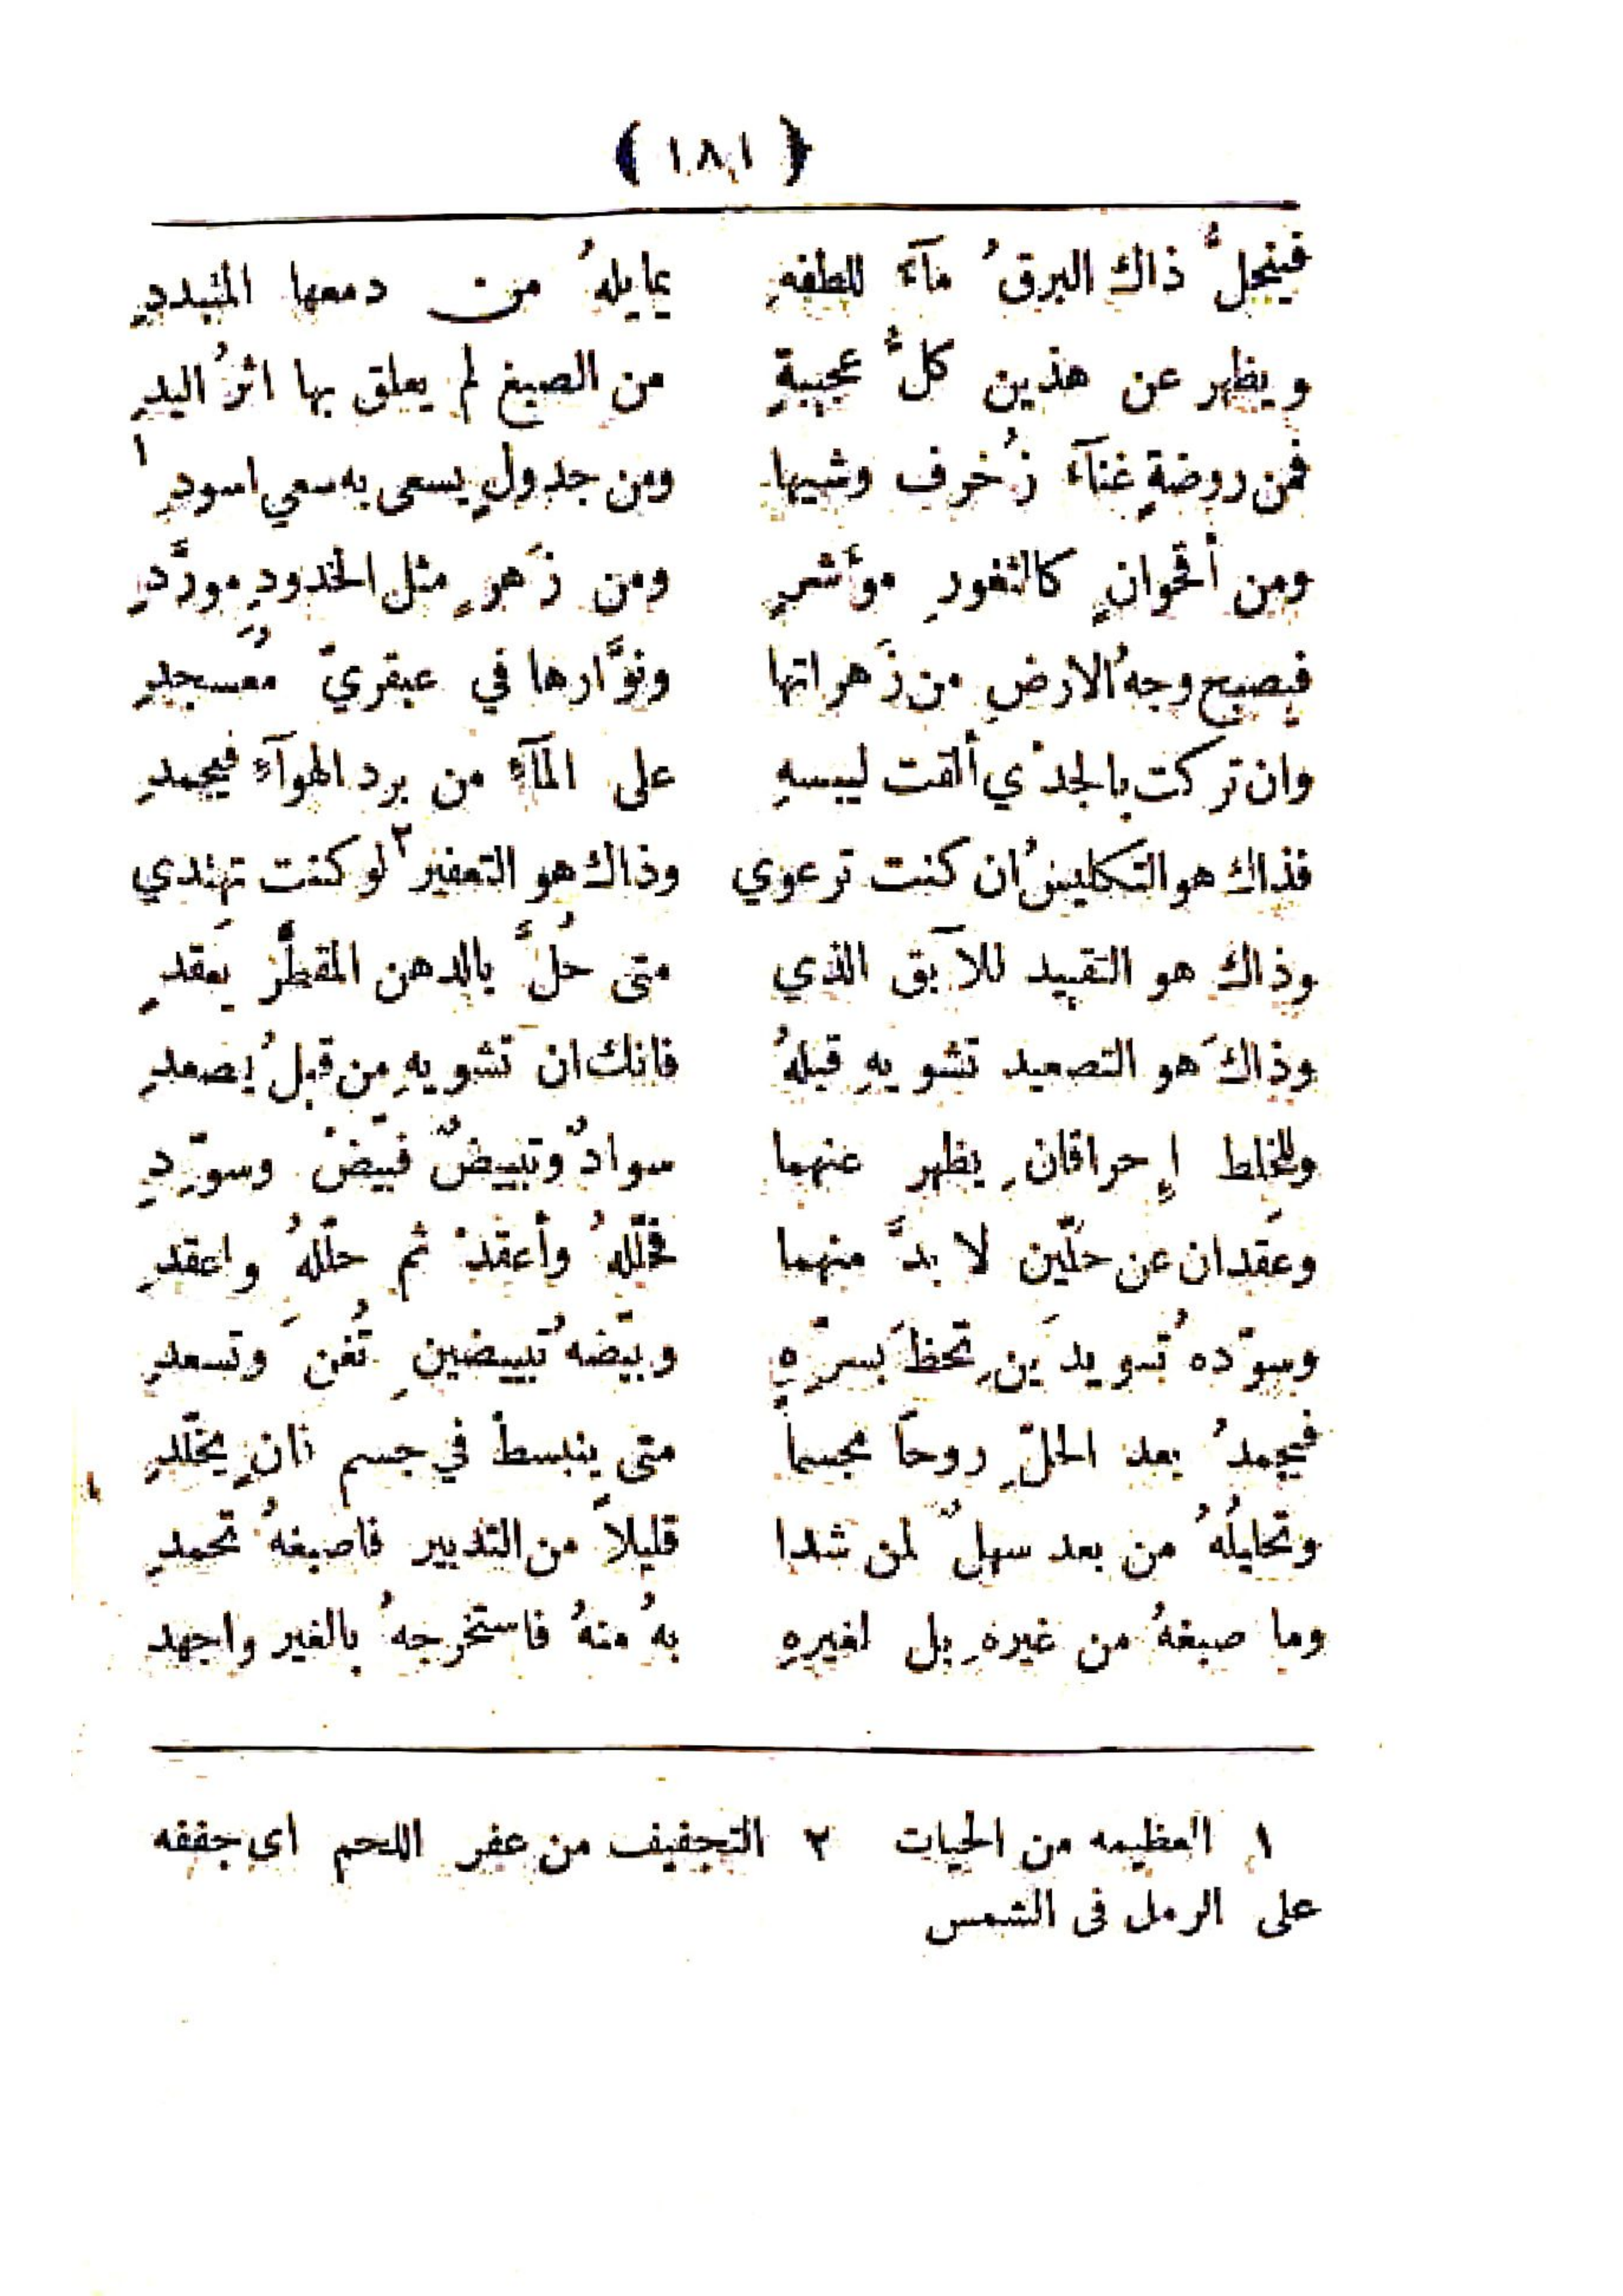 ( ١٨١ )
فينحلُّ ذاك البرقُ مآءً للطفهِ يمايلهُ من دمعها المتبددِ
ويظهر عن هذين كلُّ عجيبةٍ من الصبغ لم يعلق بها اثرُ اليدِ
فمن روضةٍ غنآءَ زُخرف وشيها ومن جدولٍ يسعى به سعي اسودِ ١
ومن أقحوانٍ كالثغورِ مؤَشرٍ ومن زَهرٍ مثل الخدودِ مورَّدِ
فيصبح وجهُ الارضِ من زَهراتها ونوَّارها في عبقريّ مُعسجدِ
وان تركت بالجدْي ألقت ليبسهِ على المآءِ من برد الهوآءِ فيجمدِ
فذاك هو التكليسُ ان كنت ترعوي وذاك هو التعفير ٢ لو كنت تهتدي
وذاك هو التقييد للآبق الذي متى حُلَّ بالدهن المقطَّر يعقدِ
وذاكَ هو التصعيد تشويهِ قبلهُ فانك ان تشويهِ من قبلُ يصعدِ
وللخلط إِحراقانِ يظهر عنهما سوادٌ وتبييضٌ فبيّضْ وسوّدِ
وعَقدان عن حلّين لا بدَّ منهما فحلّلهُ وأعقدْ ثم حلّلهُ واعقدِ
وسوّدهُ تسويدَينِ تحظَ بسرّهِ وبيّضهُ تبييضينِ تُغنَ وتسعدِ
فيجمدُ بعد الحلّ روحاً مجسماً متى ينبسطْ في جسم ثانٍ يخلّدِ
وتحليلُهُ من بعد سهلٌ لمن شدا قليلاً من التدبير فاصبغهُ تحمدِ
وما صبغهُ من غيرهِ بل لغيرهِ بهُ منهُ فاستخرجهُ بالغير واجهد
١ العظيمه من الحيات ٢ التجفيف من عفر اللحم اي جففه
على الرمل فى الشمس